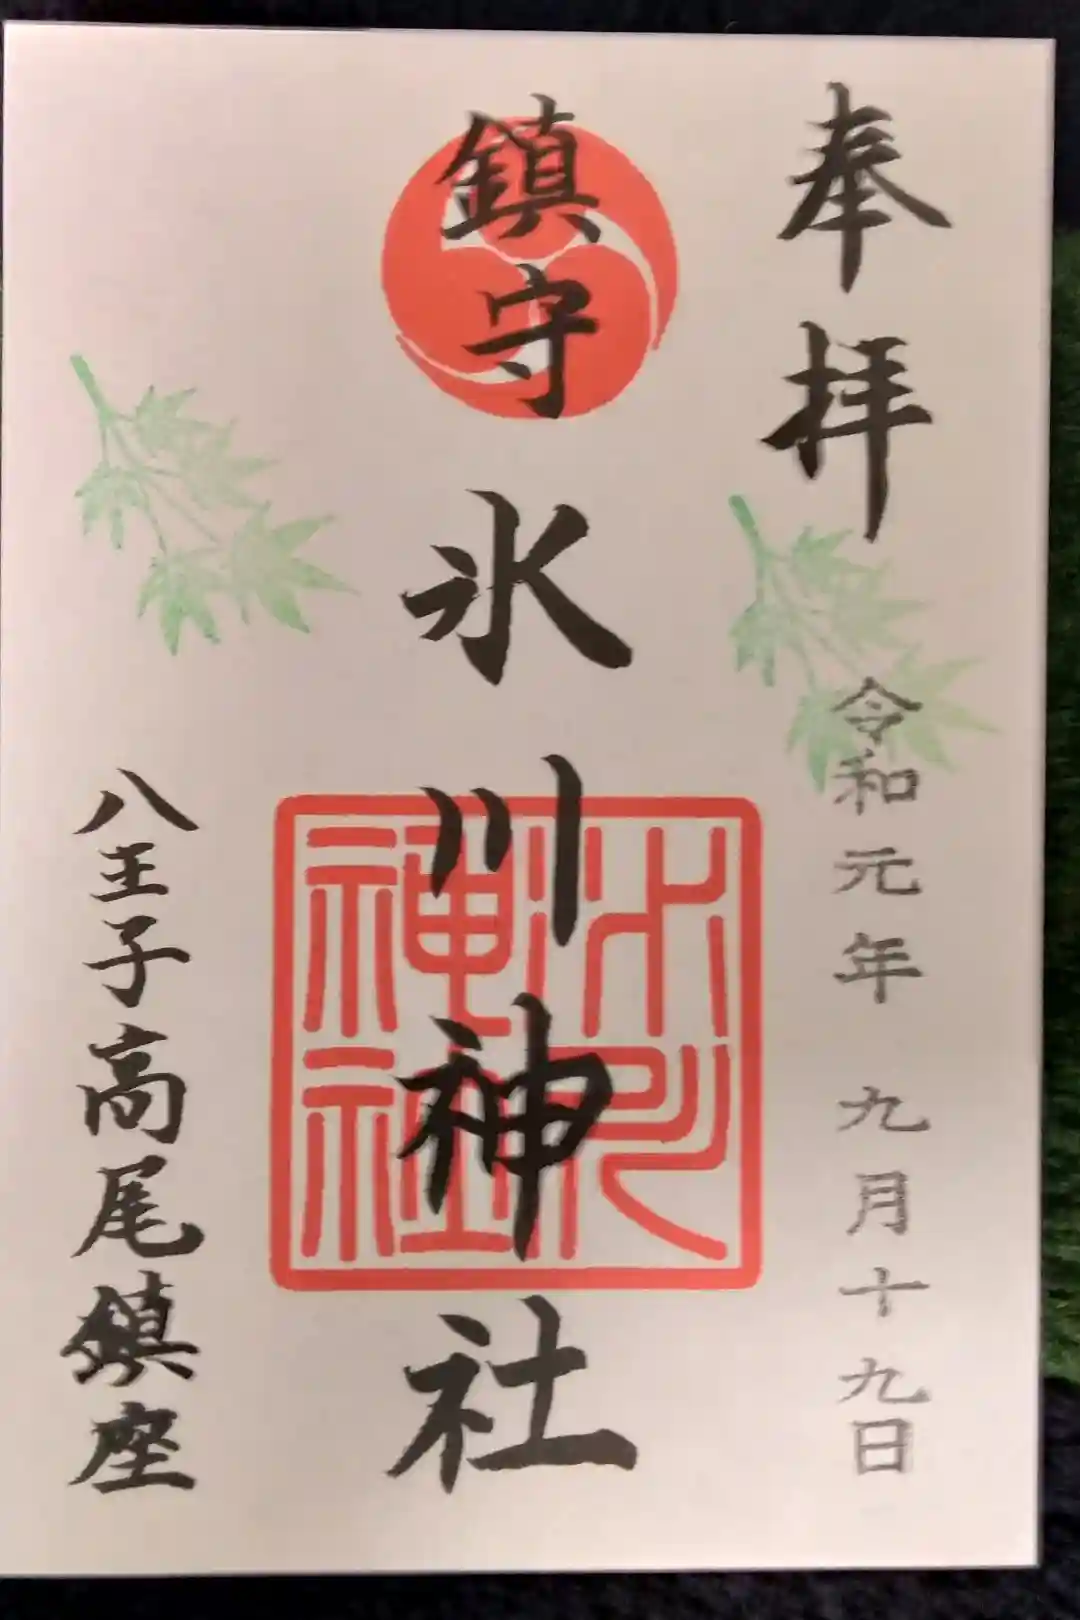 奉拝
令和元年 九月十九日
鎮守
氷川神社
氷川神社
八王子高尾鎮座